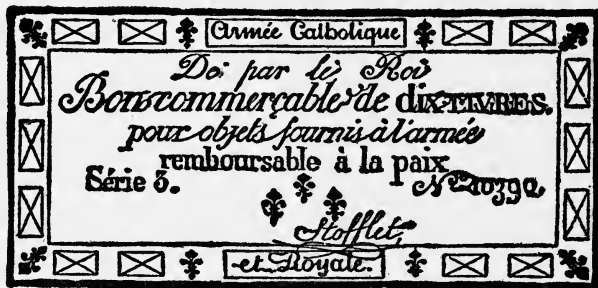 Armée Catholique
De par le Roi
Bon commerçable de dix LIVRES.
pour objets fournis à l'armée
remboursable à la paix
Série 3. No
Stofflet
et Royale.